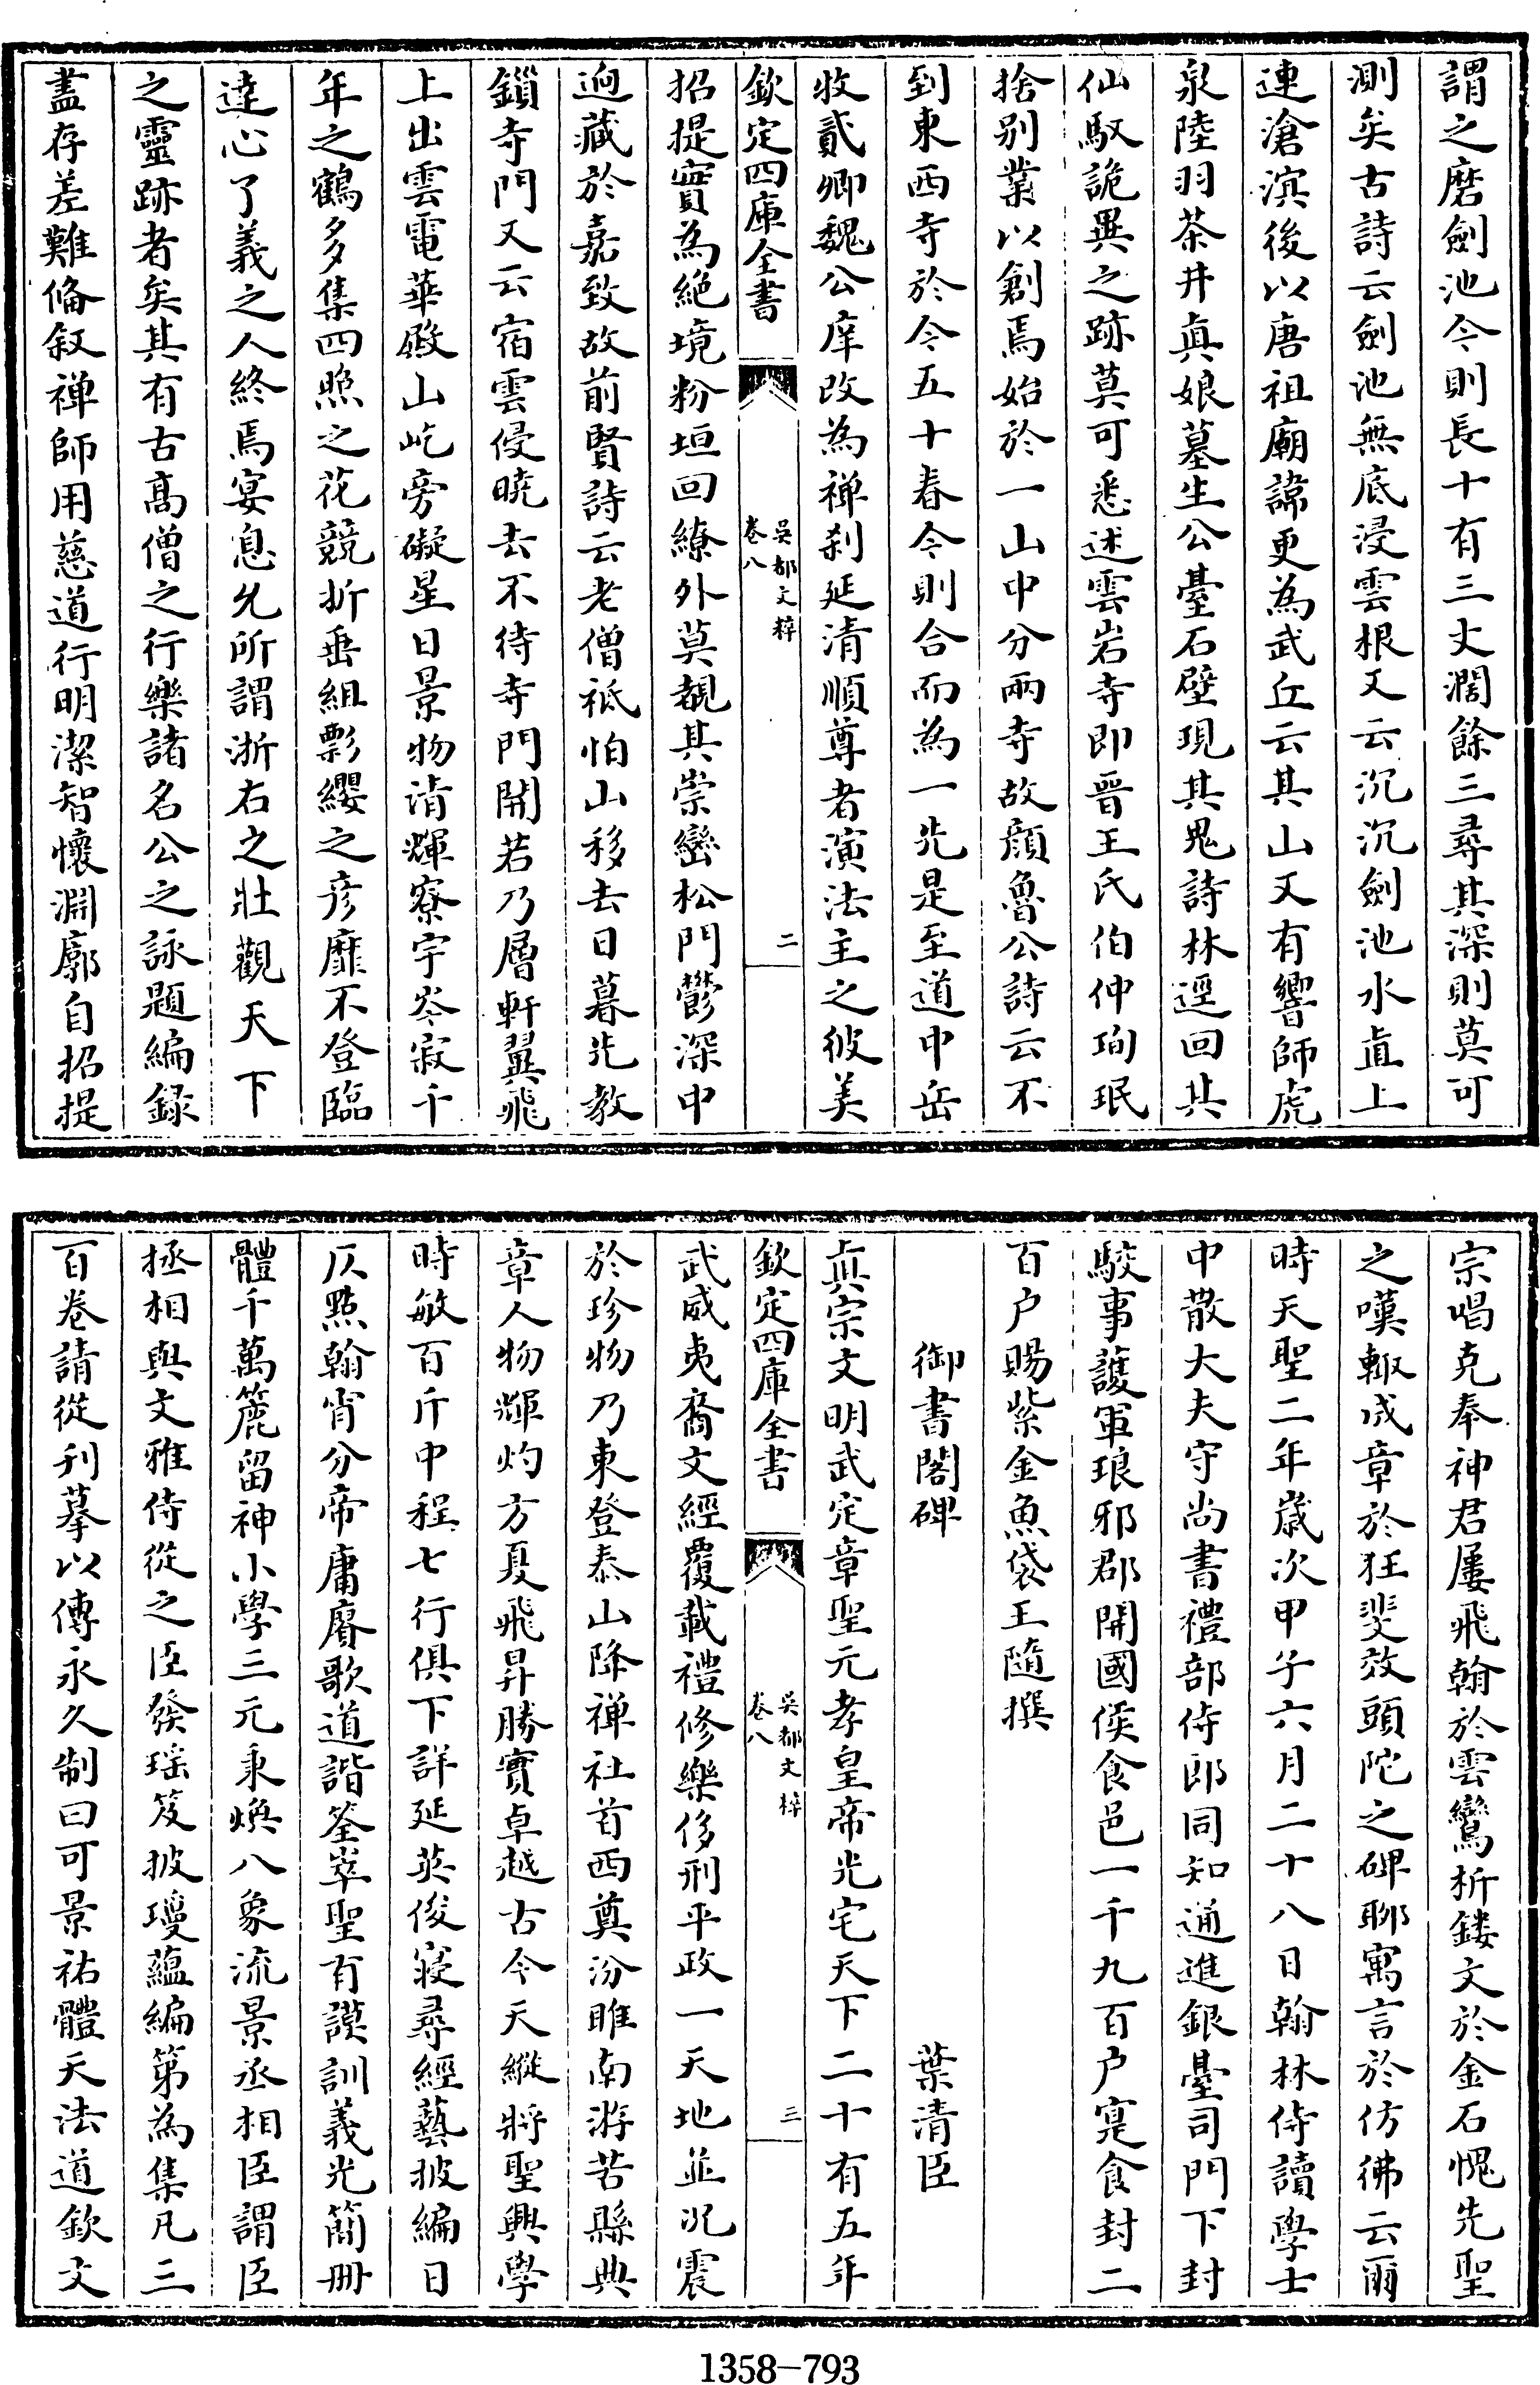 謂之磨劍池今則長十有三丈濶餘三尋其深則莫可
測矣古詩云劍池無底浸雲根又云沉沉劍池水直上
連滄溟後以唐祖廟諱更為武丘云其山又有響師虎
泉陸羽茶井真娘墓生公臺石壁現其鬼詩林逕回其
仙馭詭異之跡莫可悉述雲岩寺即晉王氏伯仲珣珉
捨别業以創焉始於一山中分兩寺故顔魯公詩云不
到東西寺於今五十春今則合而為一先是至道中岳
收貳卿魏公庠改為禅刹延清順尊者演法主之彼美
欽定四庫全書
吳都文粹
卷八
二
招提實為絶境粉垣回繚外莫覩其崇巒松門鬱深中
逈藏於嘉致故前賢詩云老僧祗怕山移去日暮先教
鎻寺門又云宿雲侵曉去不待寺門開若乃層軒翼飛
上出雲電華殿山屹旁礙星日景物清輝寮宇岑寂千
年之鶴多集四照之花競折垂組影纓之彦靡不登臨
達心了義之人終焉宴息允所謂浙右之壯觀天下
之靈跡者矣其有古髙僧之行樂諸名公之詠題編録
盖存差難備叙禅師用慈道行明潔智懷淵廓自招提
宗唱克奉神君屢飛翰於雲鸞析鏤文於金石愧先聖
之嘆輙成章於狂斐效頭陀之碑聊寓言於仿彿云爾
時天聖二年歲次甲子六月二十八日翰林侍讀學士
中散大夫守尚書禮部侍郎同知通進銀臺司門下封
駮事護軍琅邪郡開國侯食邑一千九百户寔食封二
百户賜紫金魚袋王隨撰
御書閣碑
葉清臣
真宗文明武定章聖元孝皇帝光宅天下二十有五年
欽定四庫全書
吳都文粹
卷八
三
武威夷裔文經覆載禮修樂侈刑平政一天地並况震
於珍物乃東登泰山降禅社首西奠汾睢南游苦縣典
章人物輝灼方夏飛昇勝實卓越古今天縱將聖興學
時敏百斤中程七行俱下詳延英俊寝尋經藝披編日
仄㸃翰宵分帝庸賡歌道諧荃宰聖有謨訓義光簡冊
體千萬簏留神小學三元秉煥八象流景丞相臣謂臣
拯相與文雅侍從之臣發瑶笈披瓊藴編第為集凡三
百卷請從刋摹以傳永久制曰可景祐體天法道欽文
1358-793